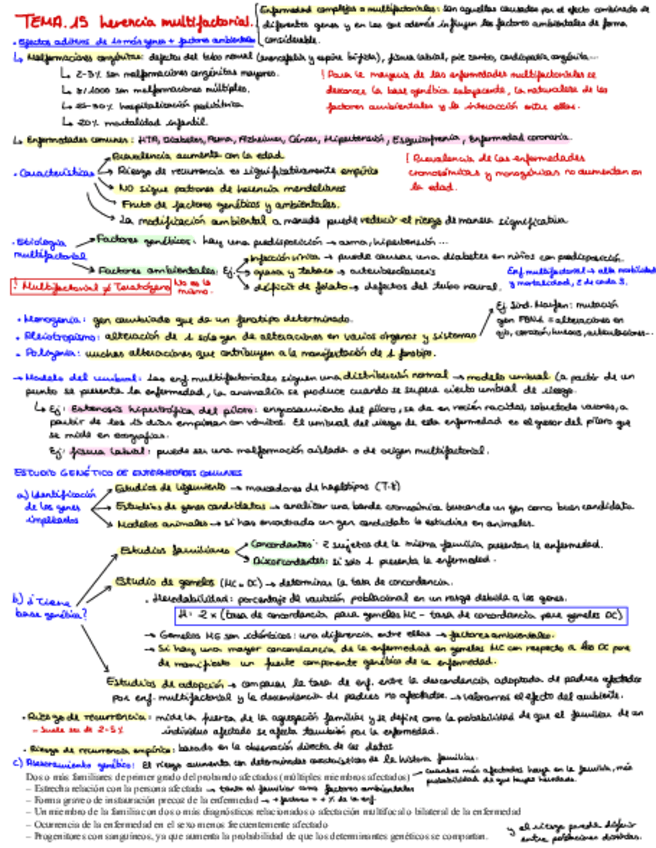 TEMA. 15 herencia multifactorial.
Enfermedad compleja o multifactorial: son aquellas causadas por el efecto combinado de
diferentes genes y en las que además influyen los factores ambientales de forma
considerable.
· Efectos aditivos de 1 o más genes + factores ambientales
↳ Malformaciones congénitas: defectos del tubo neural (anencefalia y espina bífida), fisura labial, pie zambo, cardiopatía congénita...
↳ 2-3% son malformaciones congénitas mayores.
↳ 3/1000 son malformaciones múltiples.
↳ 25-30% hospitalización pediátrica
↳ 20% mortalidad infantil.
! Para la mayoría de las enfermedades multifactoriales se
desconoce la base genética subyacente, la naturaleza de los
factores ambientales y la interacción entre ellos.
↳ Enfermedades comunes: HTA, Diabetes, Asma, Alzheimer, Cáncer, Hipertensión, Esquizofrenia, Enfermedad coronaria.
· Características
Prevalencia aumenta con la edad.
Riesgo de recurrencia es significativamente empírico
NO sigue patrones de herencia mendelianos
Fruto de factores genéticos y ambientales.
La modificación ambiental a menudo puede reducir el riesgo de manera significativa
! Prevalencia de las enfermedades
cromosómicas y monogénicas no aumentan con
la edad.
· Etiología
multifactorial
Factores genéticos: hay una predisposición → asma, hipertensión...
Factores ambientales: Ej.
Infección vírica → puede causar una diabetes en niños con predisposición.
grasa y tabaco → aterosclerosis
déficit de folato → defectos del tubo neural.
Enf multifactorial → alta morbilidad
y mortalidad, 2 de cada 3.
! Multifactorial ≠ Teratógeno
No es lo
mismo.
· Monogenia: gen cambiado que da un fenotipo determinado.
· Pleiotropismo: alteración de 1 solo gen da alteraciones en varios órganos y sistemas
· Poligenia: muchas alteraciones que contribuyen a la manifestación de 1 fenotipo.
Ej Sínd. Marfan: mutación
gen FBN1 = alteraciones en
ojo, corazón, huesos, articulaciones...
→ Modelo del umbral: las enf multifactoriales siguen una distribución normal → modelo umbral (a partir de un
punto se presenta la enfermedad, la anomalía se produce cuando se supera cierto umbral de riesgo.
↳ Ej: Estenosis hipertrófica del píloro: engrosamiento del píloro, se da en recién nacidos, sobretodo varones, a
partir de los 15 días empiezan con vómitos. El umbral del riesgo de esta enfermedad es el grosor del píloro que
se mide en ecografías.
Ej: fisura labial: puede ser una malformación aislada o de origen multifactorial.
ESTUDIO GENÉTICO DE ENFERMEDADES COMUNES
a) Identificación
de los genes
implicados
Estudios de ligamiento → marcadores de haplotipos
Estudios de genes candidatos → analizar una banda cromosómica buscando un gen como buen candidato
Modelos animales → si has encontrado un gen candidato lo estudias en animales.
b) ¿Tiene
base genética?
Estudios familiares
Concordantes: 2 sujetos de la misma familia presentan la enfermedad.
Discordantes: si solo 1 presenta la enfermedad.
Estudio de gemelos (MC - DC) → determinar la tasa de concordancia.
· Heredabilidad: porcentaje de variación poblacional en un rasgo debida a los genes.
H: 2 x (tasa de concordancia para gemelos MC - tasa de concordancia para gemelos DC)
→ Gemelos MC son idénticos: una diferencia entre ellos → factores ambientales.
→ Si hay una mayor concordancia de la enfermedad en gemelos MC con respecto a los DC pone
de manifiesto un fuerte componente genético de la enfermedad.
Estudios de adopción → comparar la tasa de enf. entre la descendencia adoptada de padres afectados
por enf. multifactorial y la descendencia de padres no afectados. → valoramos el efecto del ambiente.
· Riesgo de recurrencia: mide la fuerza de la agregación familiar y se define como la probabilidad de que el familiar de un
individuo afectado se afecte también por la enfermedad.
- Suele ser de 2-5%
· Riesgo de recurrencia empírico: basado en la observación directa de los datos
c) Asesoramiento genético: El riesgo aumenta con determinadas características de la historia familiar.
Dos o más familiares de primer grado del probando afectados (múltiples miembros afectados) → cuantos más afectados haya en la familia, más
probabilidad de que haya heredado.
– Estrecha relación con la persona afectada → tanto al familiar como factores ambientales
– Forma grave o de instauración precoz de la enfermedad
– Un miembro de la familia con dos o más diagnósticos relacionados o afectación multifocal o bilateral de la enfermedad
– Ocurrencia de la enfermedad en el sexo menos frecuentemente afectado
– Progenitores con sanguíneos, ya que aumenta la probabilidad de que los determinantes genéticos se compartan.
y el riesgo puede diferir
entre poblaciones distintas.